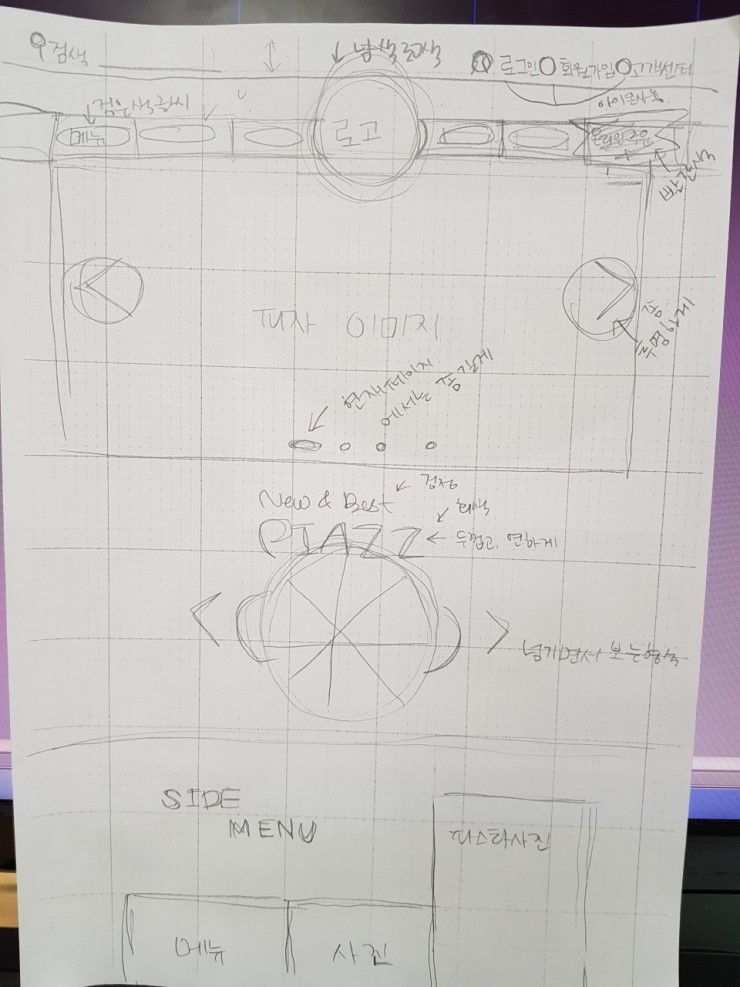 검색
남색 회색
로그인 회원가입 고객센터
아이콘 사용
검은색 글씨
메뉴
로고
온라인주문
빨간색
피자 이미지
좀
투명하게
현재페이지
에서는 좀 길게
New & Best
검정
회색
PIAZZ
두껍고, 연하게
넘기면서 보는형식
SIDE
MENU
파스타사진
메뉴
사진